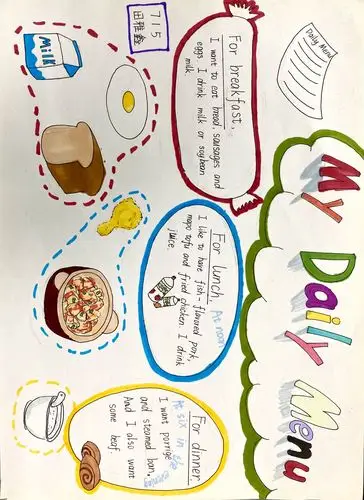 My Daily Menu
Daily Menu
715
田雅鑫
Milk
For breakfast,
I want to eat bread, sausages and
eggs. I drink milk or soybean
milk.
For lunch, At noon
I like to have fish-flavored pork,
mapo tofu and fried chicken. I drink
juice.
For dinner,
At six in the evening
I want porrige
and steamed bun.
And I also want
some beaf.